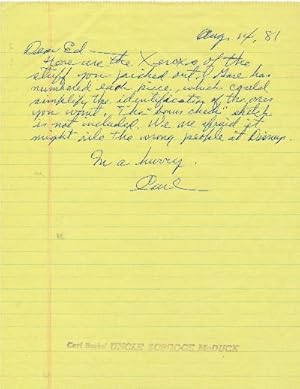 Aug. 14, '81
Dear Ed —
Here are the Xeroxes of the
stuff you picked out. Gare has
numbered each piece, which could
simplify the identification of the ones
you want. The "down check" sketch
is not included. We are afraid it
might rile the wrong people at Disney.
In a hurry.
Carl
Carl Barks' UNCLE SCROOGE McDUCK